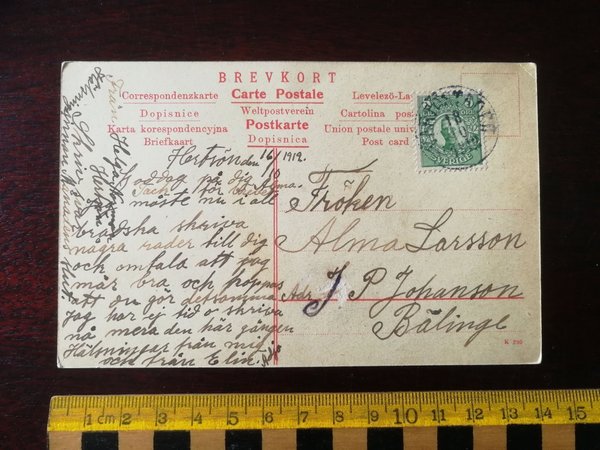 BREVKORT
Correspondenzkarte Carte Postale Levelezö-La
Dopisnice Weltpostverein Cartolina pos
Karta korespondencyjna Postkarte Union postale univ
Briefkaart Dopisnica Post card
SVERIGE
Hertsön den 16/10 1912.
Goddag på dig Alma.
Tack för
måste nu i all
brådska skriva
några rader till dig
och omtala att jag
mår bra och hoppas
att du gör detsamma
Jag har ej tid o skriva
nå mera den här gången
Hälsningar från mig
och från Elin.
Från Helga
Fröken
Alma Larsson
Adr J P Johanson
Bälinge
K 230
1 cm 2 3 4 5 6 7 8 9 10 11 12 13 14 15